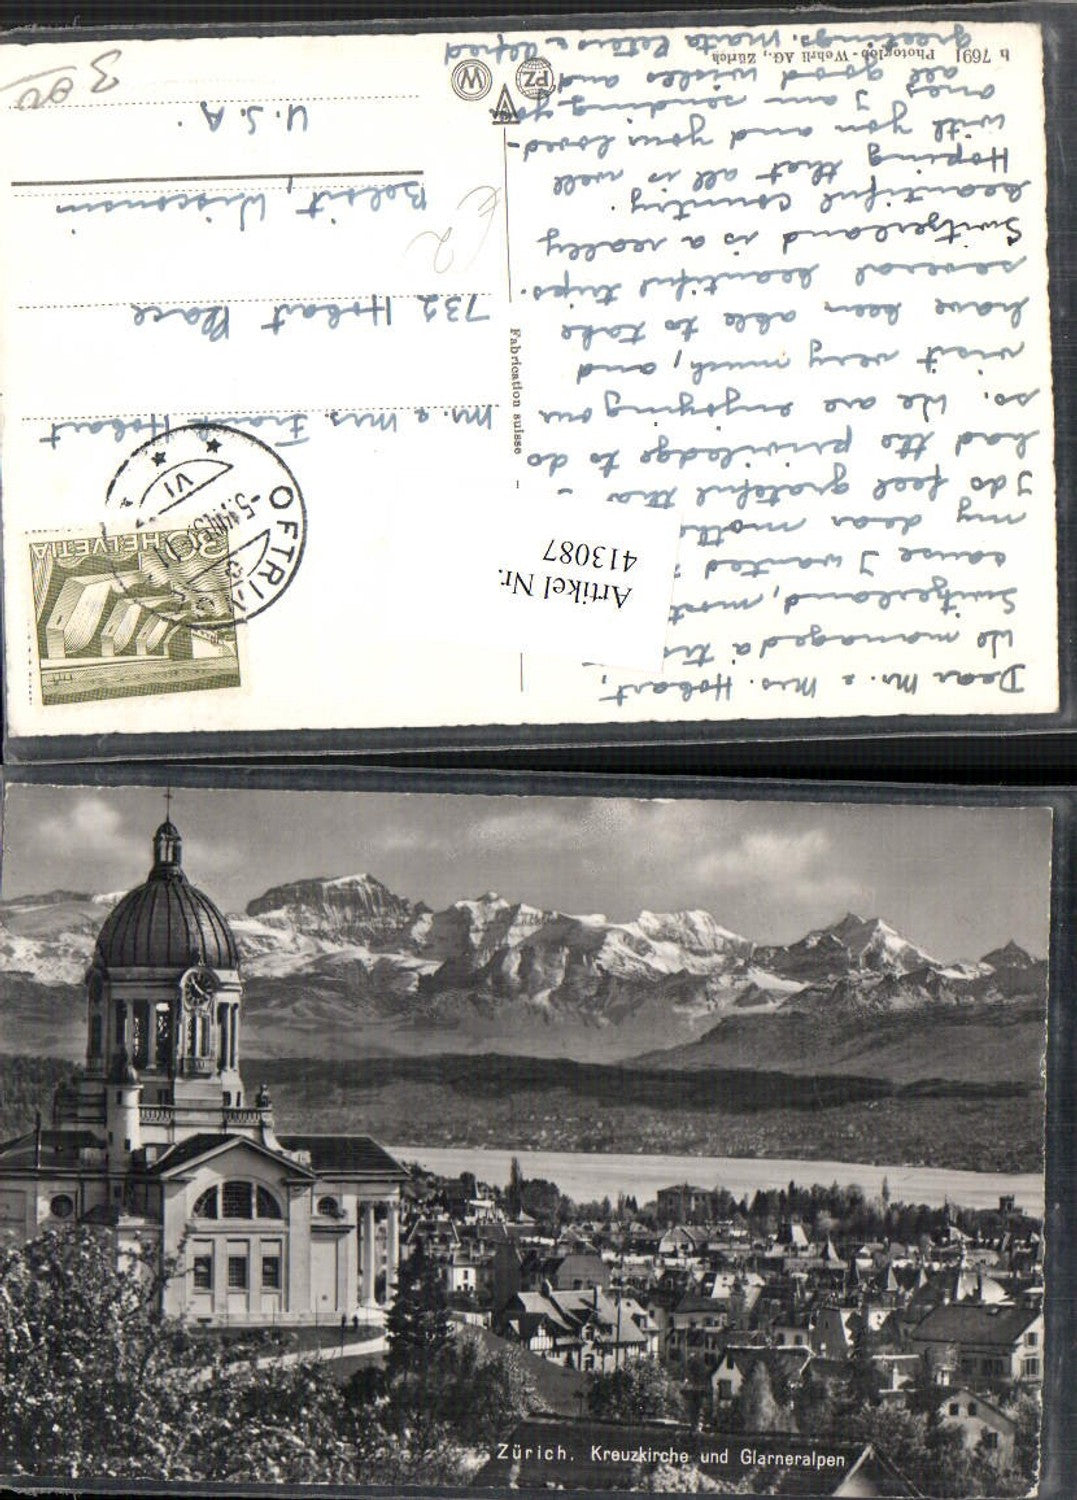 Dear Mr. & Mrs. Hobart,
We managed a
Switzerland,
cause I wanted
my dear
I do feel grateful tha -
had the priviledge to do
so. We are enjoying our
visit very much, and
have been able to take
several beautiful trips.
Switzerland is a really
beautiful country.
Hoping that all is well
with you and your loved-
ones I am sending
all good wishes and
greetings.
h 7691 Photoglob-Wehrli AG., Zürich
PZ
W
Fabrication suisse
Artikel Nr.
413087
HELVETIA
30
OFTRINGEN
VI
Mr. & Mrs. Frank Hobart
732 Hobart Place
Beloit, Wisconsin
U.S.A.
€ 2
Zürich. Kreuzkirche und Glarneralpen